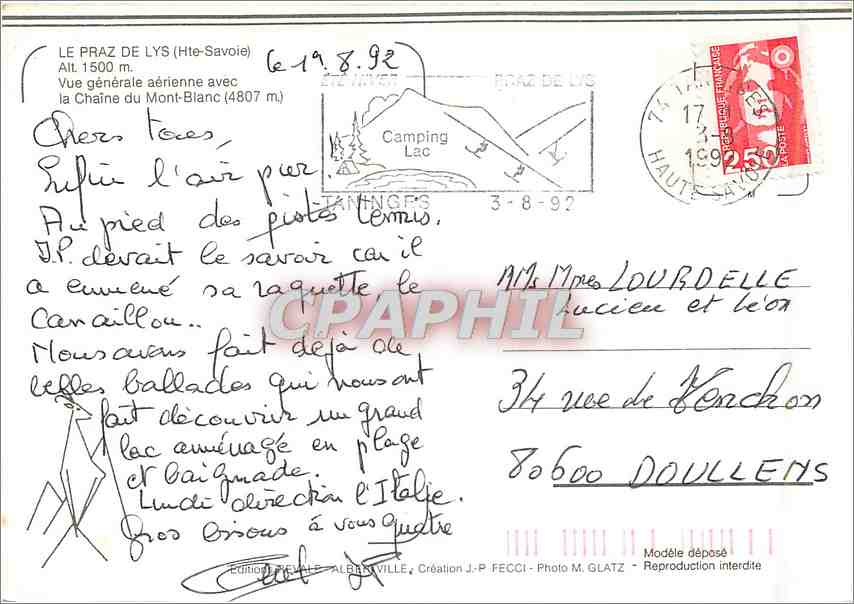 LE PRAZ DE LYS (Hte-Savoie)
Alt. 1500 m.
Vue générale aérienne avec
la Chaîne du Mont-Blanc (4807 m.)
le 19.8.92
ETE HIVER PRAZ DE LYS
Camping
Lac
TANINGES 3-8-92
74 TANINGES
17 H
3-8
1992
HAUTE SAVOIE
REPUBLIQUE FRANÇAISE
2,50
LA POSTE
Chers tous,
Enfin l'air pur!
Au pied des pistes tennis.
J.P. devait le savoir car il
a emmené sa raquette le
Canaillou..
Nous avons fait déjà de
belles ballades qui nous ont
fait découvrir un grand
lac aménagé en plage
et baignade.
Lundi direction l'Italie.
Gros bisous à vous quatre
JP
MMs Mmes LOURDELLE
Lucien et Léon
34 rue de
80600 DOULLENS
CPAPHIL
Modèle déposé
Reproduction interdite
Editions REVALP - ALBERTVILLE, Création J.-P FECCI - Photo M. GLATZ